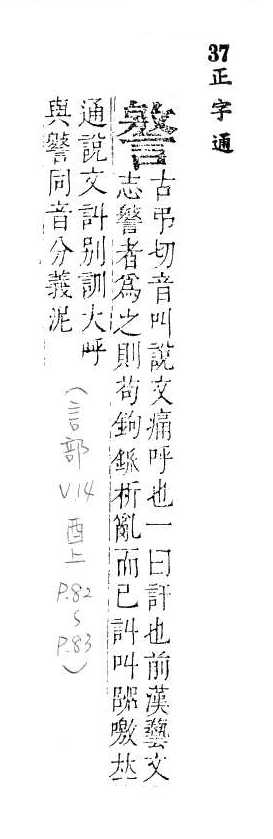 37 正字通
譥
古弔切音叫說文痛呼也一曰訐也前漢藝文
志譥者爲之則苟鉤鈲析亂而已訆叫嘂噭𠀤
通說文訆別訓大呼
與譥同音分義泥
（言部 V14 酉上 P.82 ~ P.83）